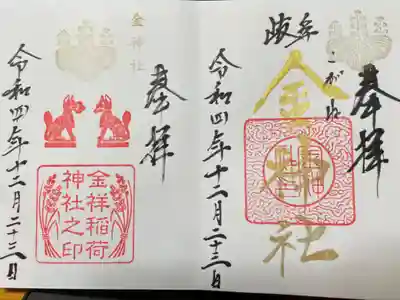 奉拝
岐阜
こがね
金神社
令和四年十二月二十三日
奉拝
金神社
金祥稲荷
神社之印
令和四年十二月二十三日